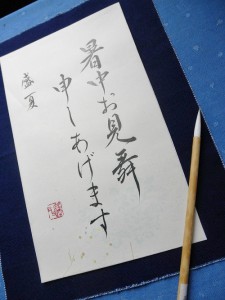 暑中お見舞
申しあげます
盛夏